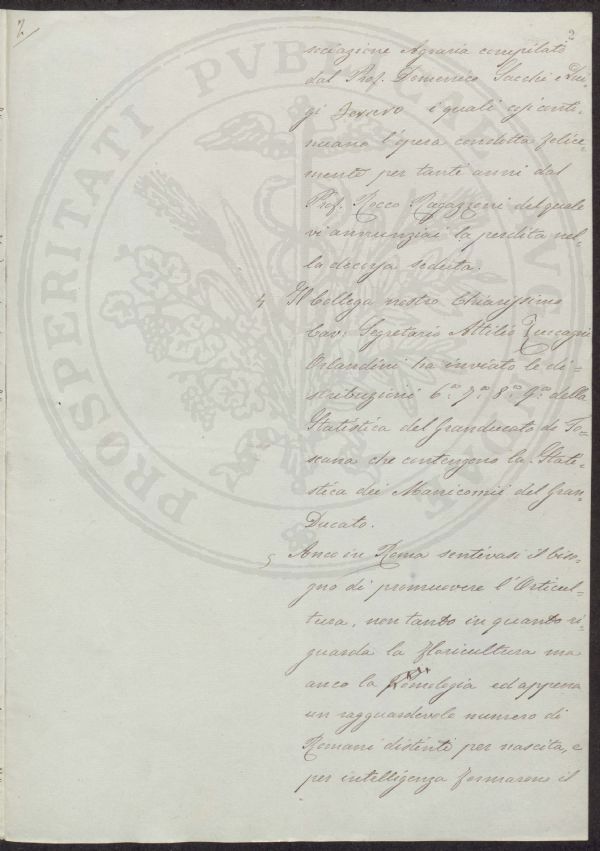 2
2
sociazione Agraria compilato
dal Prof. Domenico Sacchi e Lui-
gi i quali essi conti-
nuano l'opera condotta felice-
mente per tanti anni dal
Prof. Rocco Ragazzoni del quale
vi annunziai la perdita nel-
la decorsa seduta.
4 Il Collega nostro Chiarissimo
Cav: Segretario Attilio Zuccagni
Orlandini ha inviato le di-
stribuzioni 6.a 7.a 8.a 9.a della
Statistica del Granducato di To-
scana che contengono la Stati-
stica dei Manicomii del Gran
Ducato.
5 Anco in Roma sentivasi il biso-
gno di promuovere l'Orticul-
tura, non tanto in quanto ri-
guarda la floricultura ma
anco la Pomologia ed appena
un ragguardevole numero di
Romani distinti per nascita, e
per intelligenza formarono il
PROSPERITATI PVBLICAE AVGENDAE